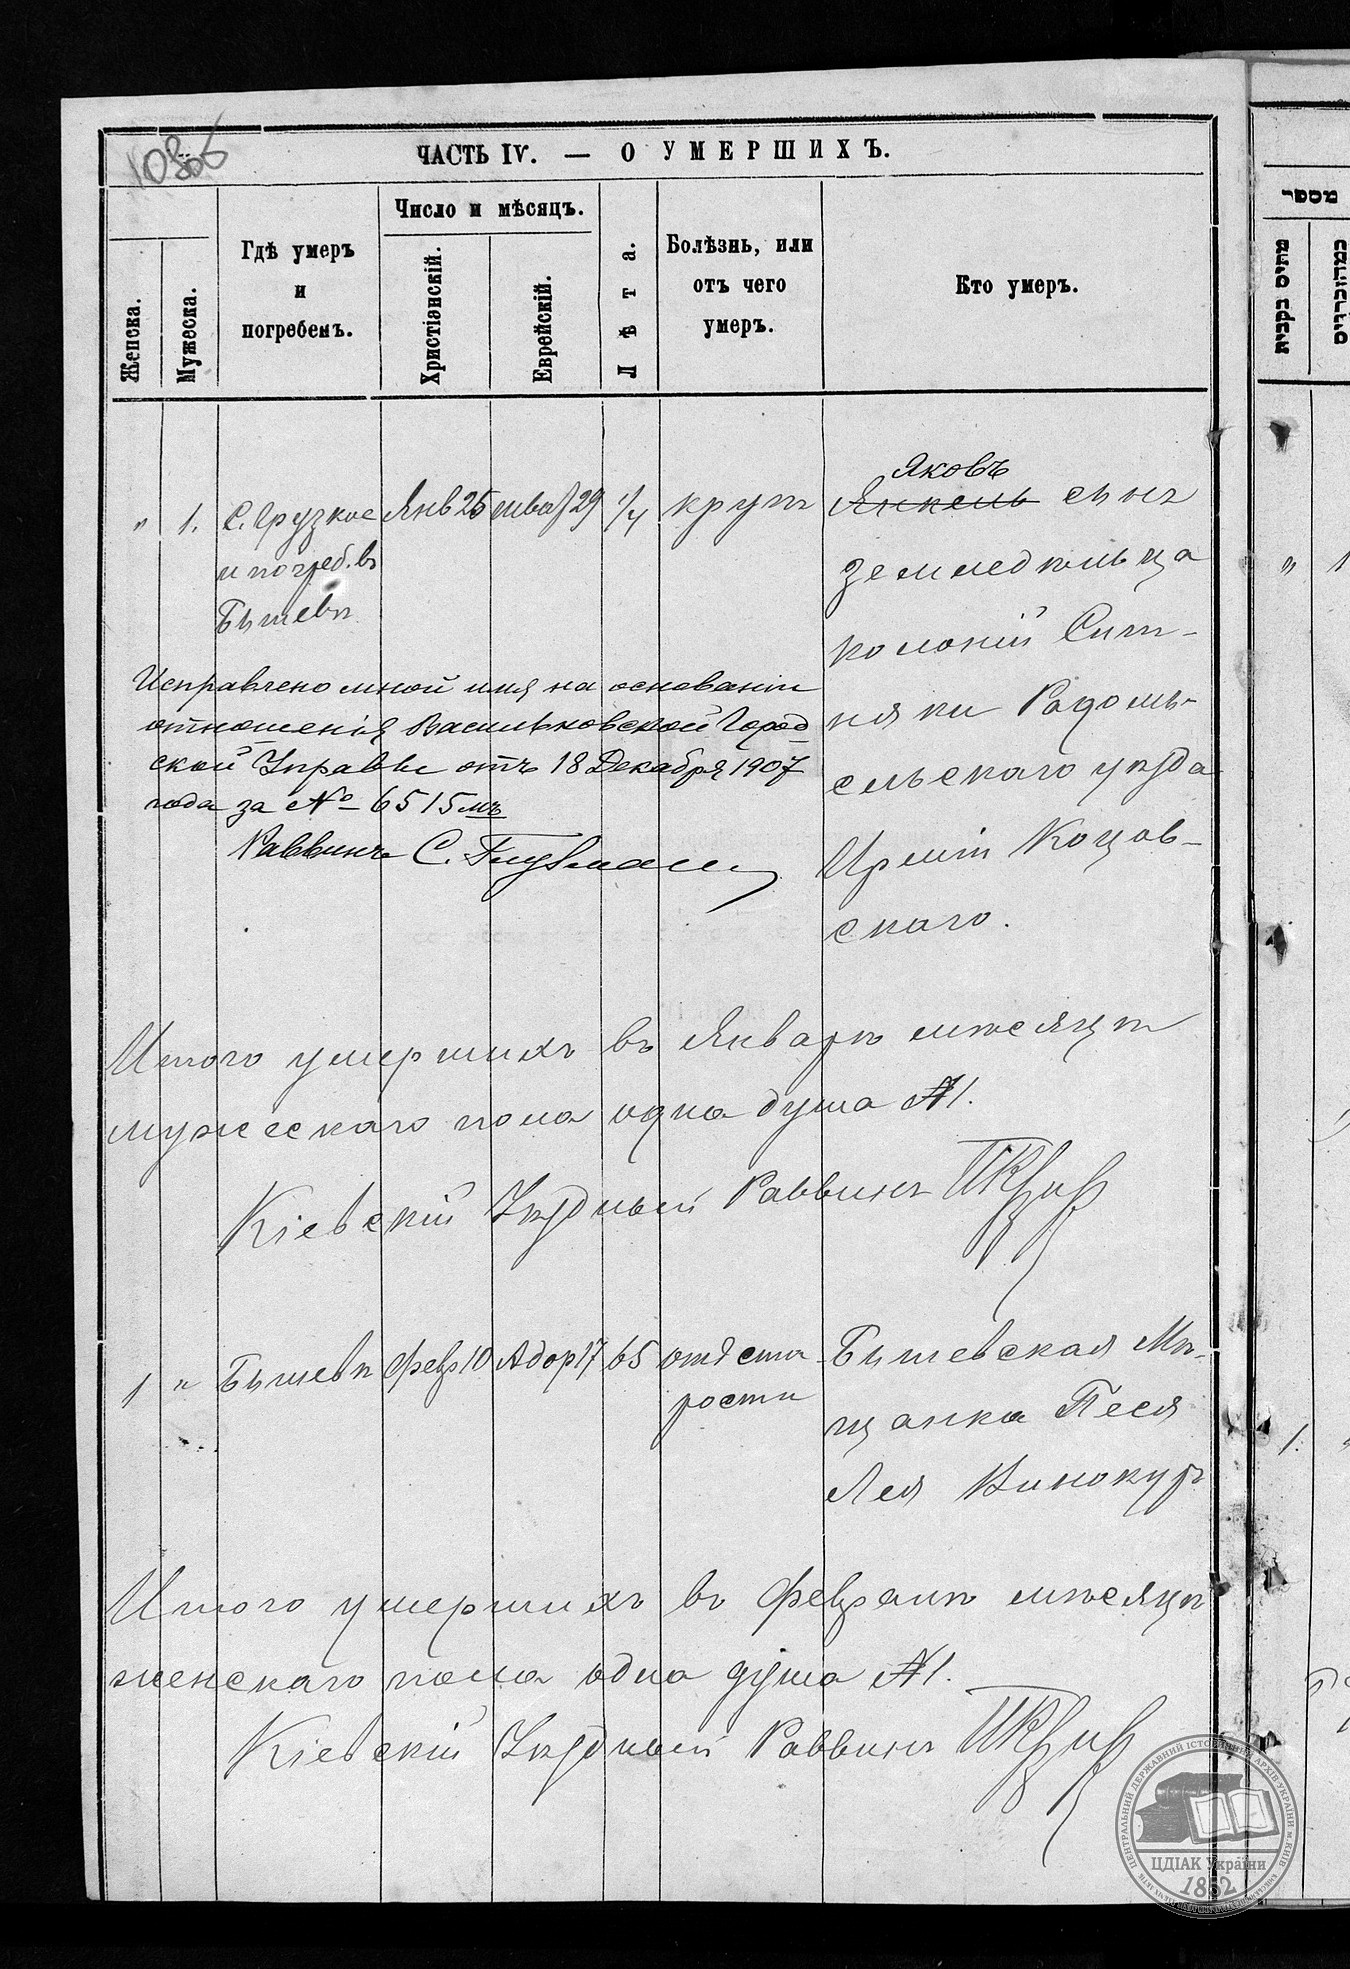 ЧАСТЬ IV. — О УМЕРШИХЪ.
Женска.
Мужеска.
Гдѣ умеръ
и
погребенъ.
Число и мѣсяцъ.
Христіянскій.
Еврейскій.
Лѣта.
Болѣзнь, или
отъ чего
умеръ.
Кто умеръ.
„ 1. С. Грузкое Янв 25 29 1/4 крупъ Янкель сынъ
Яковъ
и погреб. въ
Бышевѣ
земледѣльца
колоніи Сит-
няки Радомы-
сльскаго уѣзда
Коцов-
скаго.
Исправлено мной имя на основаніи
отношенія Васильковской Город
ской Управы отъ 18 Декабря 1907
года за № 6515мъ
Раввинъ С.
Итого умершихъ въ Январѣ мѣсяцѣ
мужескаго пола одна душа №1.
Кіевскій Уѣздный Раввинъ
1 „ Бышевѣ Февр 10 Адор 17 65 отъ ста
рости
Бышевская Мѣ-
щанка Песя
Лея Винокуръ
Итого умершихъ въ Февралѣ мѣсяцѣ
женскаго пола одна душа №1.
Кіевскій Уѣздный Раввинъ
מספר
ЦЕНТРАЛЬНИЙ ДЕРЖАВНИЙ ІСТОРИЧНИЙ АРХІВ УКРАЇНИ, м. КИЇВ
ЦДІАК України
1852